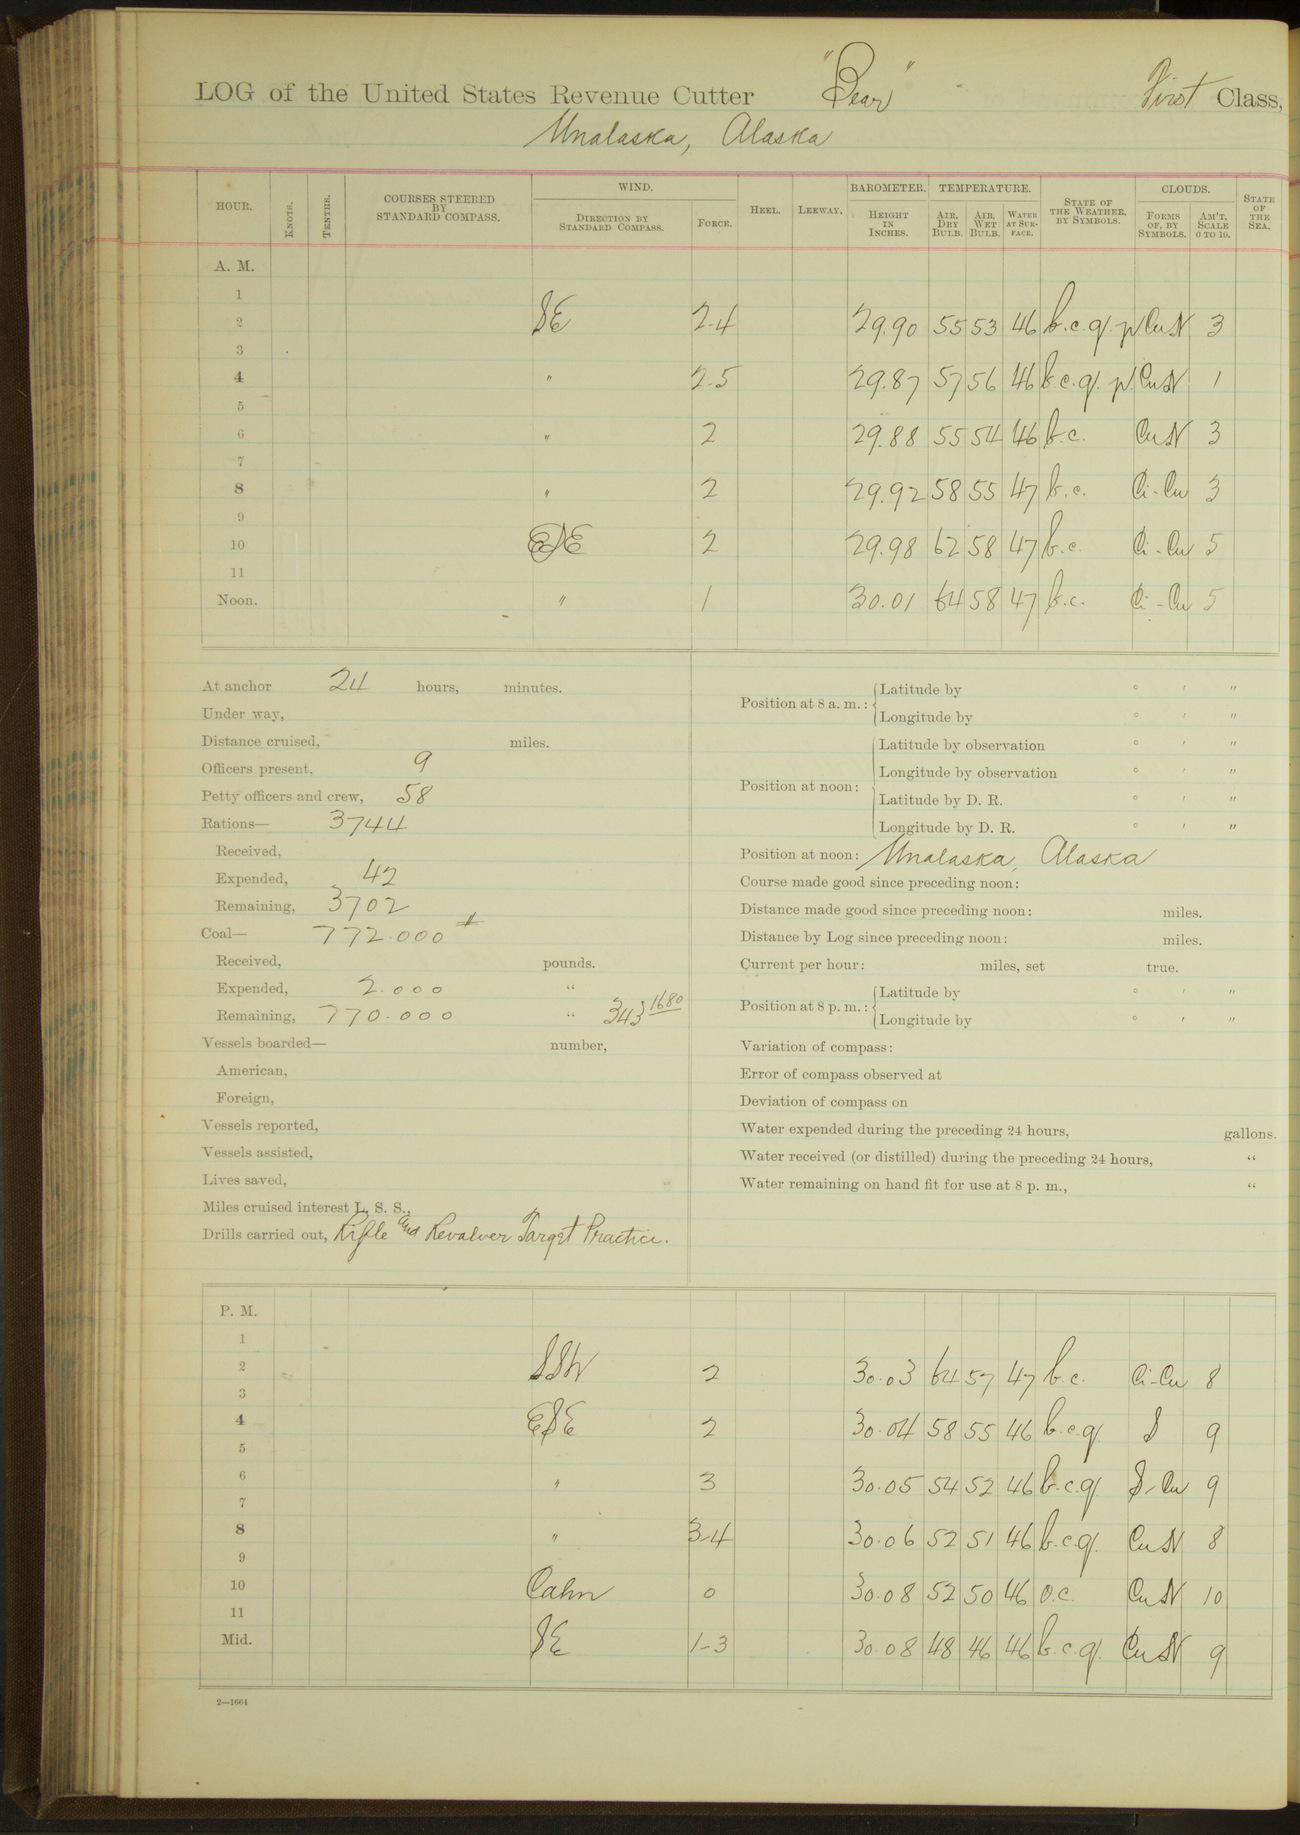 LOG of the United States Revenue Cutter "Bear" First Class,
Unalaska, Alaska
HOUR. KNOTS. TENTHS. COURSES STEERED BY STANDARD COMPASS. WIND. DIRECTION BY STANDARD COMPASS. FORCE. HEEL. LEEWAY. BAROMETER. HEIGHT IN INCHES. TEMPERATURE. AIR, DRY BULB. AIR, WET BULB. WATER AT SURFACE. STATE OF THE WEATHER, BY SYMBOLS. CLOUDS. FORMS OF, BY SYMBOLS. AM'T, SCALE 0 TO 10. STATE OF THE SEA.
A. M.
1
2 SE 2-4 29.90 55 53 46 b.c.q.p CuN 3
3
4 " 2-5 29.87 57 56 46 b.c.q.p. CuN 1
5
6 " 2 29.88 55 54 46 b.c. CuN 3
7
8 " 2 29.92 58 55 47 b.c. Ci-Cu 3
9
10 ESE 2 29.98 62 58 47 b.c. Ci-Cu 5
11
Noon. " 1 30.01 64 58 47 b.c. Ci-Cu 5
At anchor 24 hours, minutes.
Under way,
Distance cruised, miles.
Officers present, 9
Petty officers and crew, 58
Rations— 3744
Received,
Expended, 42
Remaining, 3702
Coal— 772.000
Received, pounds.
Expended, 2.000 "
Remaining, 770.000 " 343 1680
Vessels boarded— number,
American,
Foreign,
Vessels reported,
Vessels assisted,
Lives saved,
Miles cruised interest L. S. S.,
Drills carried out, Rifle and Revolver Target Practice.
Position at 8 a. m.: Latitude by ° ' "
Longitude by ° ' "
Position at noon: Latitude by observation ° ' "
Longitude by observation ° ' "
Latitude by D. R. ° ' "
Longitude by D. R. ° ' "
Position at noon: Unalaska, Alaska
Course made good since preceding noon:
Distance made good since preceding noon: miles.
Distance by Log since preceding noon: miles.
Current per hour: miles, set true.
Position at 8 p. m.: Latitude by ° ' "
Longitude by ° ' "
Variation of compass:
Error of compass observed at
Deviation of compass on
Water expended during the preceding 24 hours, gallons.
Water received (or distilled) during the preceding 24 hours, "
Water remaining on hand fit for use at 8 p. m., "
P. M.
1
2 SSW 2 30.03 64 57 47 b.c. Ci-Cu 8
3
4 ESE 2 30.04 58 55 46 b.c.q. S 9
5
6 " 3 30.05 54 52 46 b.c.q. S-Cu 9
7
8 " 3-4 30.06 52 51 46 b.c.q. CuN 8
9
10 Calm 0 30.08 52 50 46 o.c. CuN 10
11
Mid. SE 1-3 30.08 48 46 46 b.c.q. CuN 9
2—1664